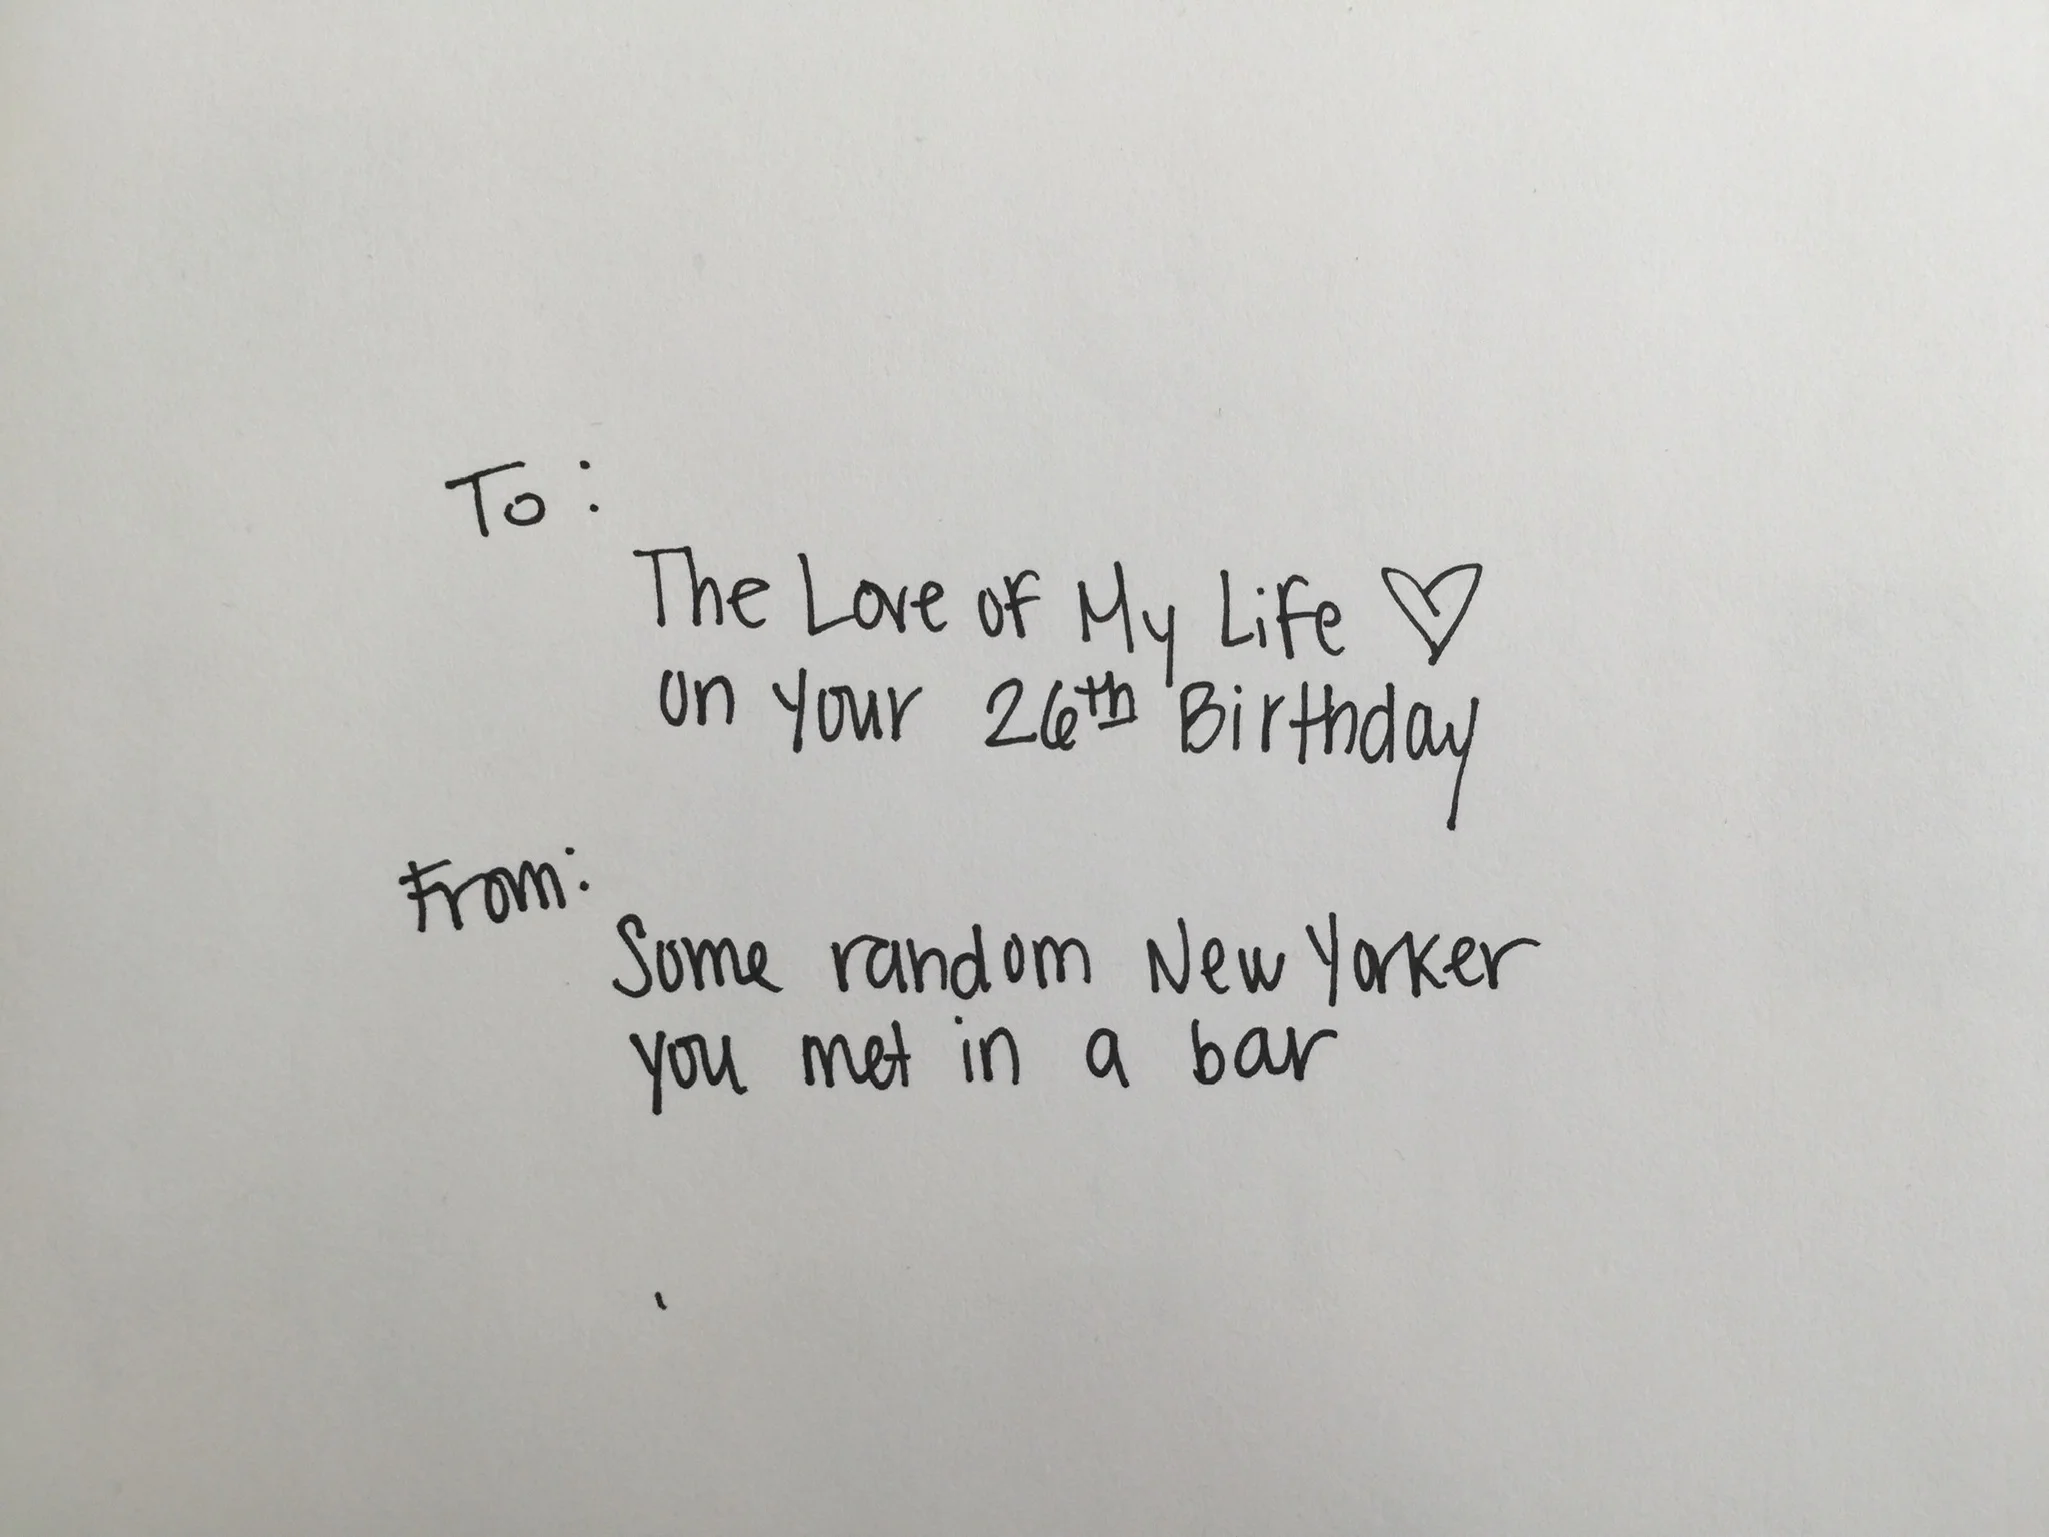 To:
The Love of My Life ♡
on your 26th Birthday
From:
Some random New Yorker
you met in a bar